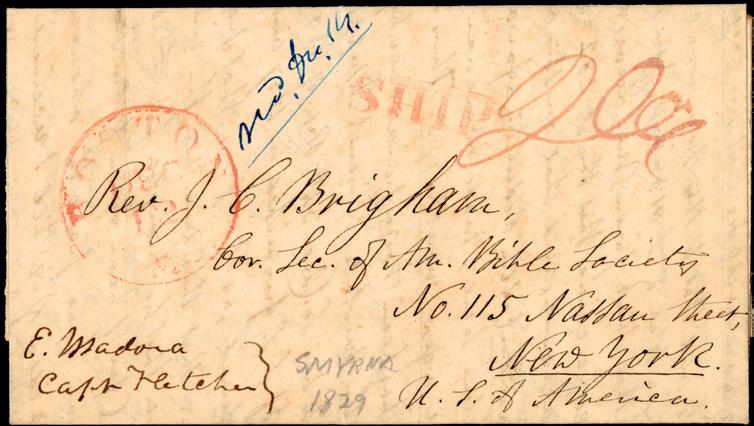 SHIP
BOSTO
DEC
Rev. J. C. Brigham,
Cor. Sec. of Am. Bible Society
No. 115 Nassau Street,
New York.
U. S. of America.
E. Madora
Capt. Fletcher
SMYRNA
1829